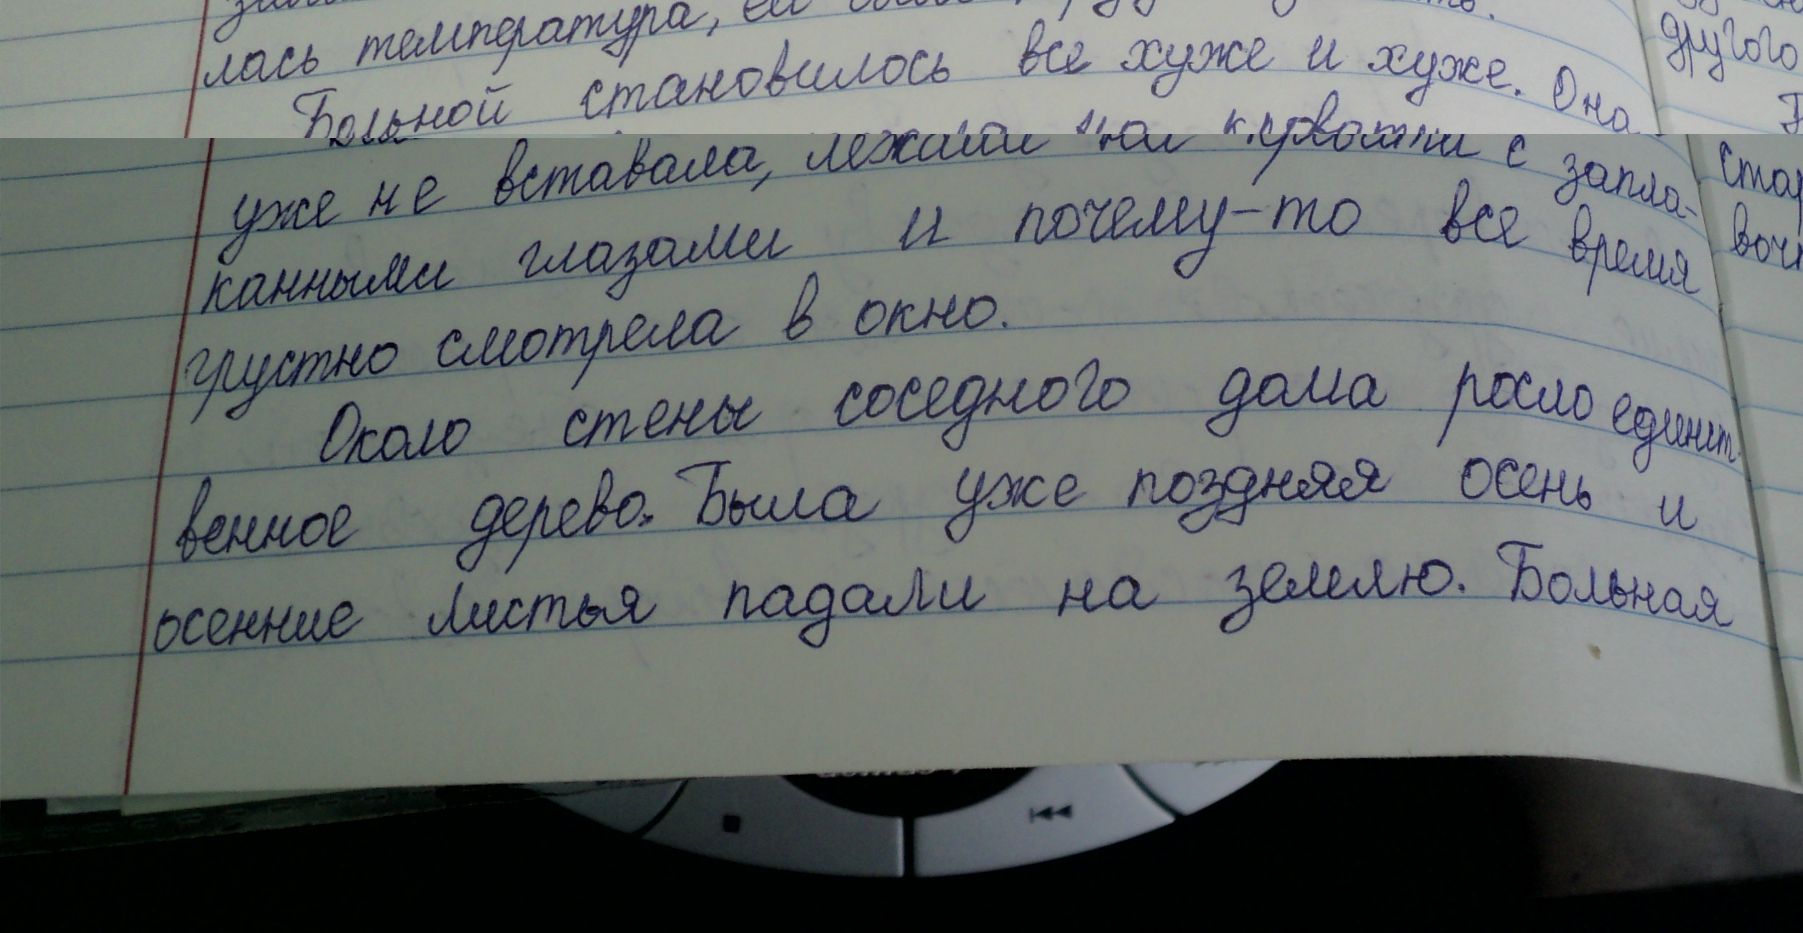 лась температура, ей
Больной становилось все хуже и хуже. Она
уже не вставала, лежала на кровати с запла-
канными глазами и почему-то все время
грустно смотрела в окно.
Около стены соседного дома росло единст
венное дерево. Была уже поздняя осень и
осенние листья падали на землю. Больная
другого